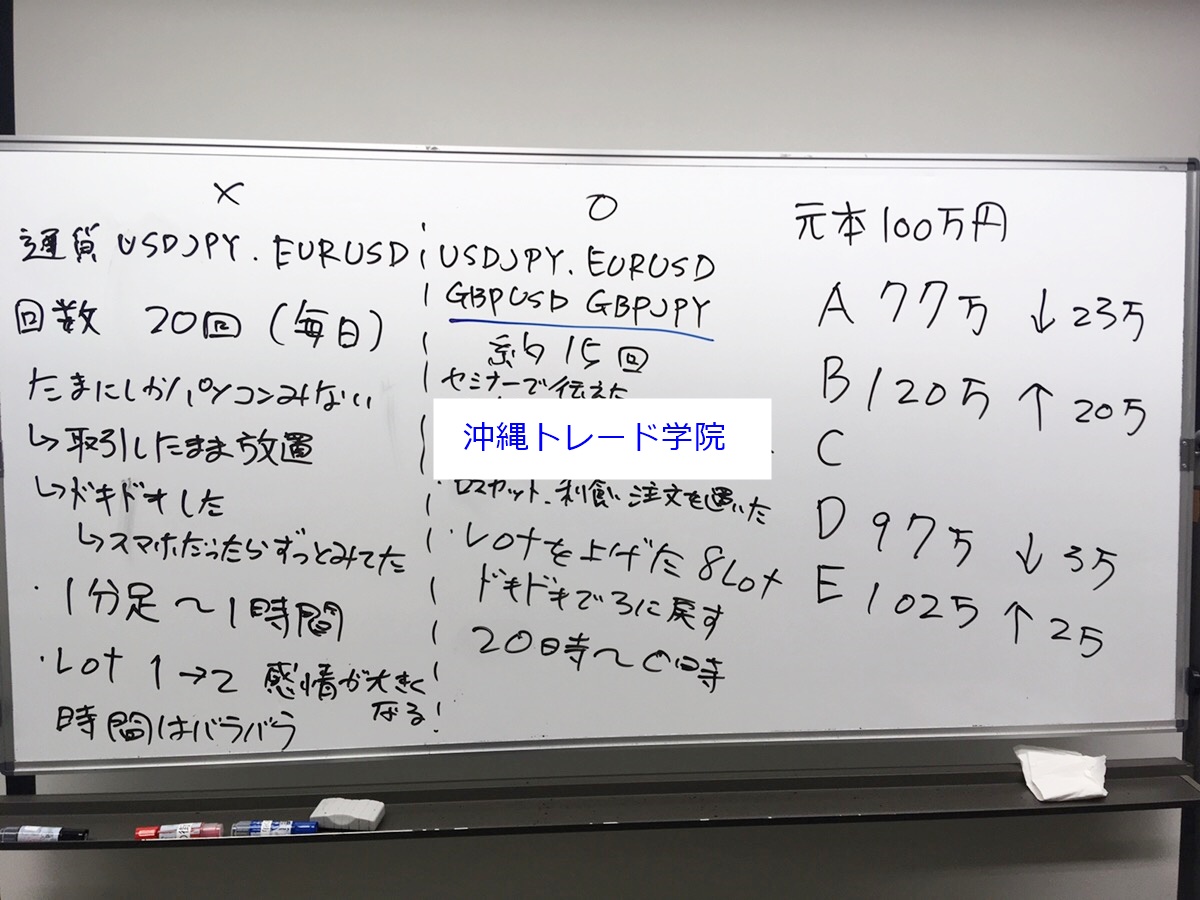 ×
通貨 USDJPY. EURUSD
回数 20回 (毎日)
たまにしかパソコンみない
↳取引したまま放置
↳ドキドキした
↳スマホだったらずっとみてた
・1分足〜1時間
・Lot 1→2 感情が大きく
なる!
時間はバラバラ
○
USDJPY. EURUSD
GBPUSD GBPJPY
約15回
セミナーで伝えた
沖縄トレード学院
ロスカット、利食い注文を置いた
・Lotを上げた 8Lot
ドキドキで3に戻す
20時〜0時
元本100万円
A 77万 ↓23万
B 120万 ↑20万
C
D 97万 ↓3万
E 102万 ↑2万